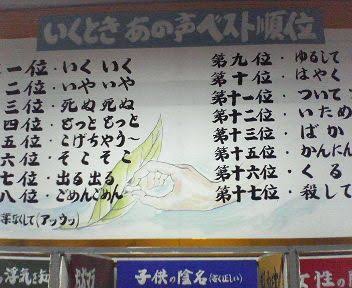 いくとき あの声ベスト順位
一位・いく いく
二位・いやいや
三位・死ぬ死ぬ
四位・もっともっと
五位・こげちゃう
六位・そこそこ
七位・出る出る
八位・ごめんごめん
葉なくして(アッウッ)
第九位・ゆるして
第十位・はやく
第十一位・ついて
第十二位・いため
第十三位・ばか
第十五位・かんにん
第十六位・くる
第十七位・殺して
浮気を
子供の陰名(ろく正しい)
女性の